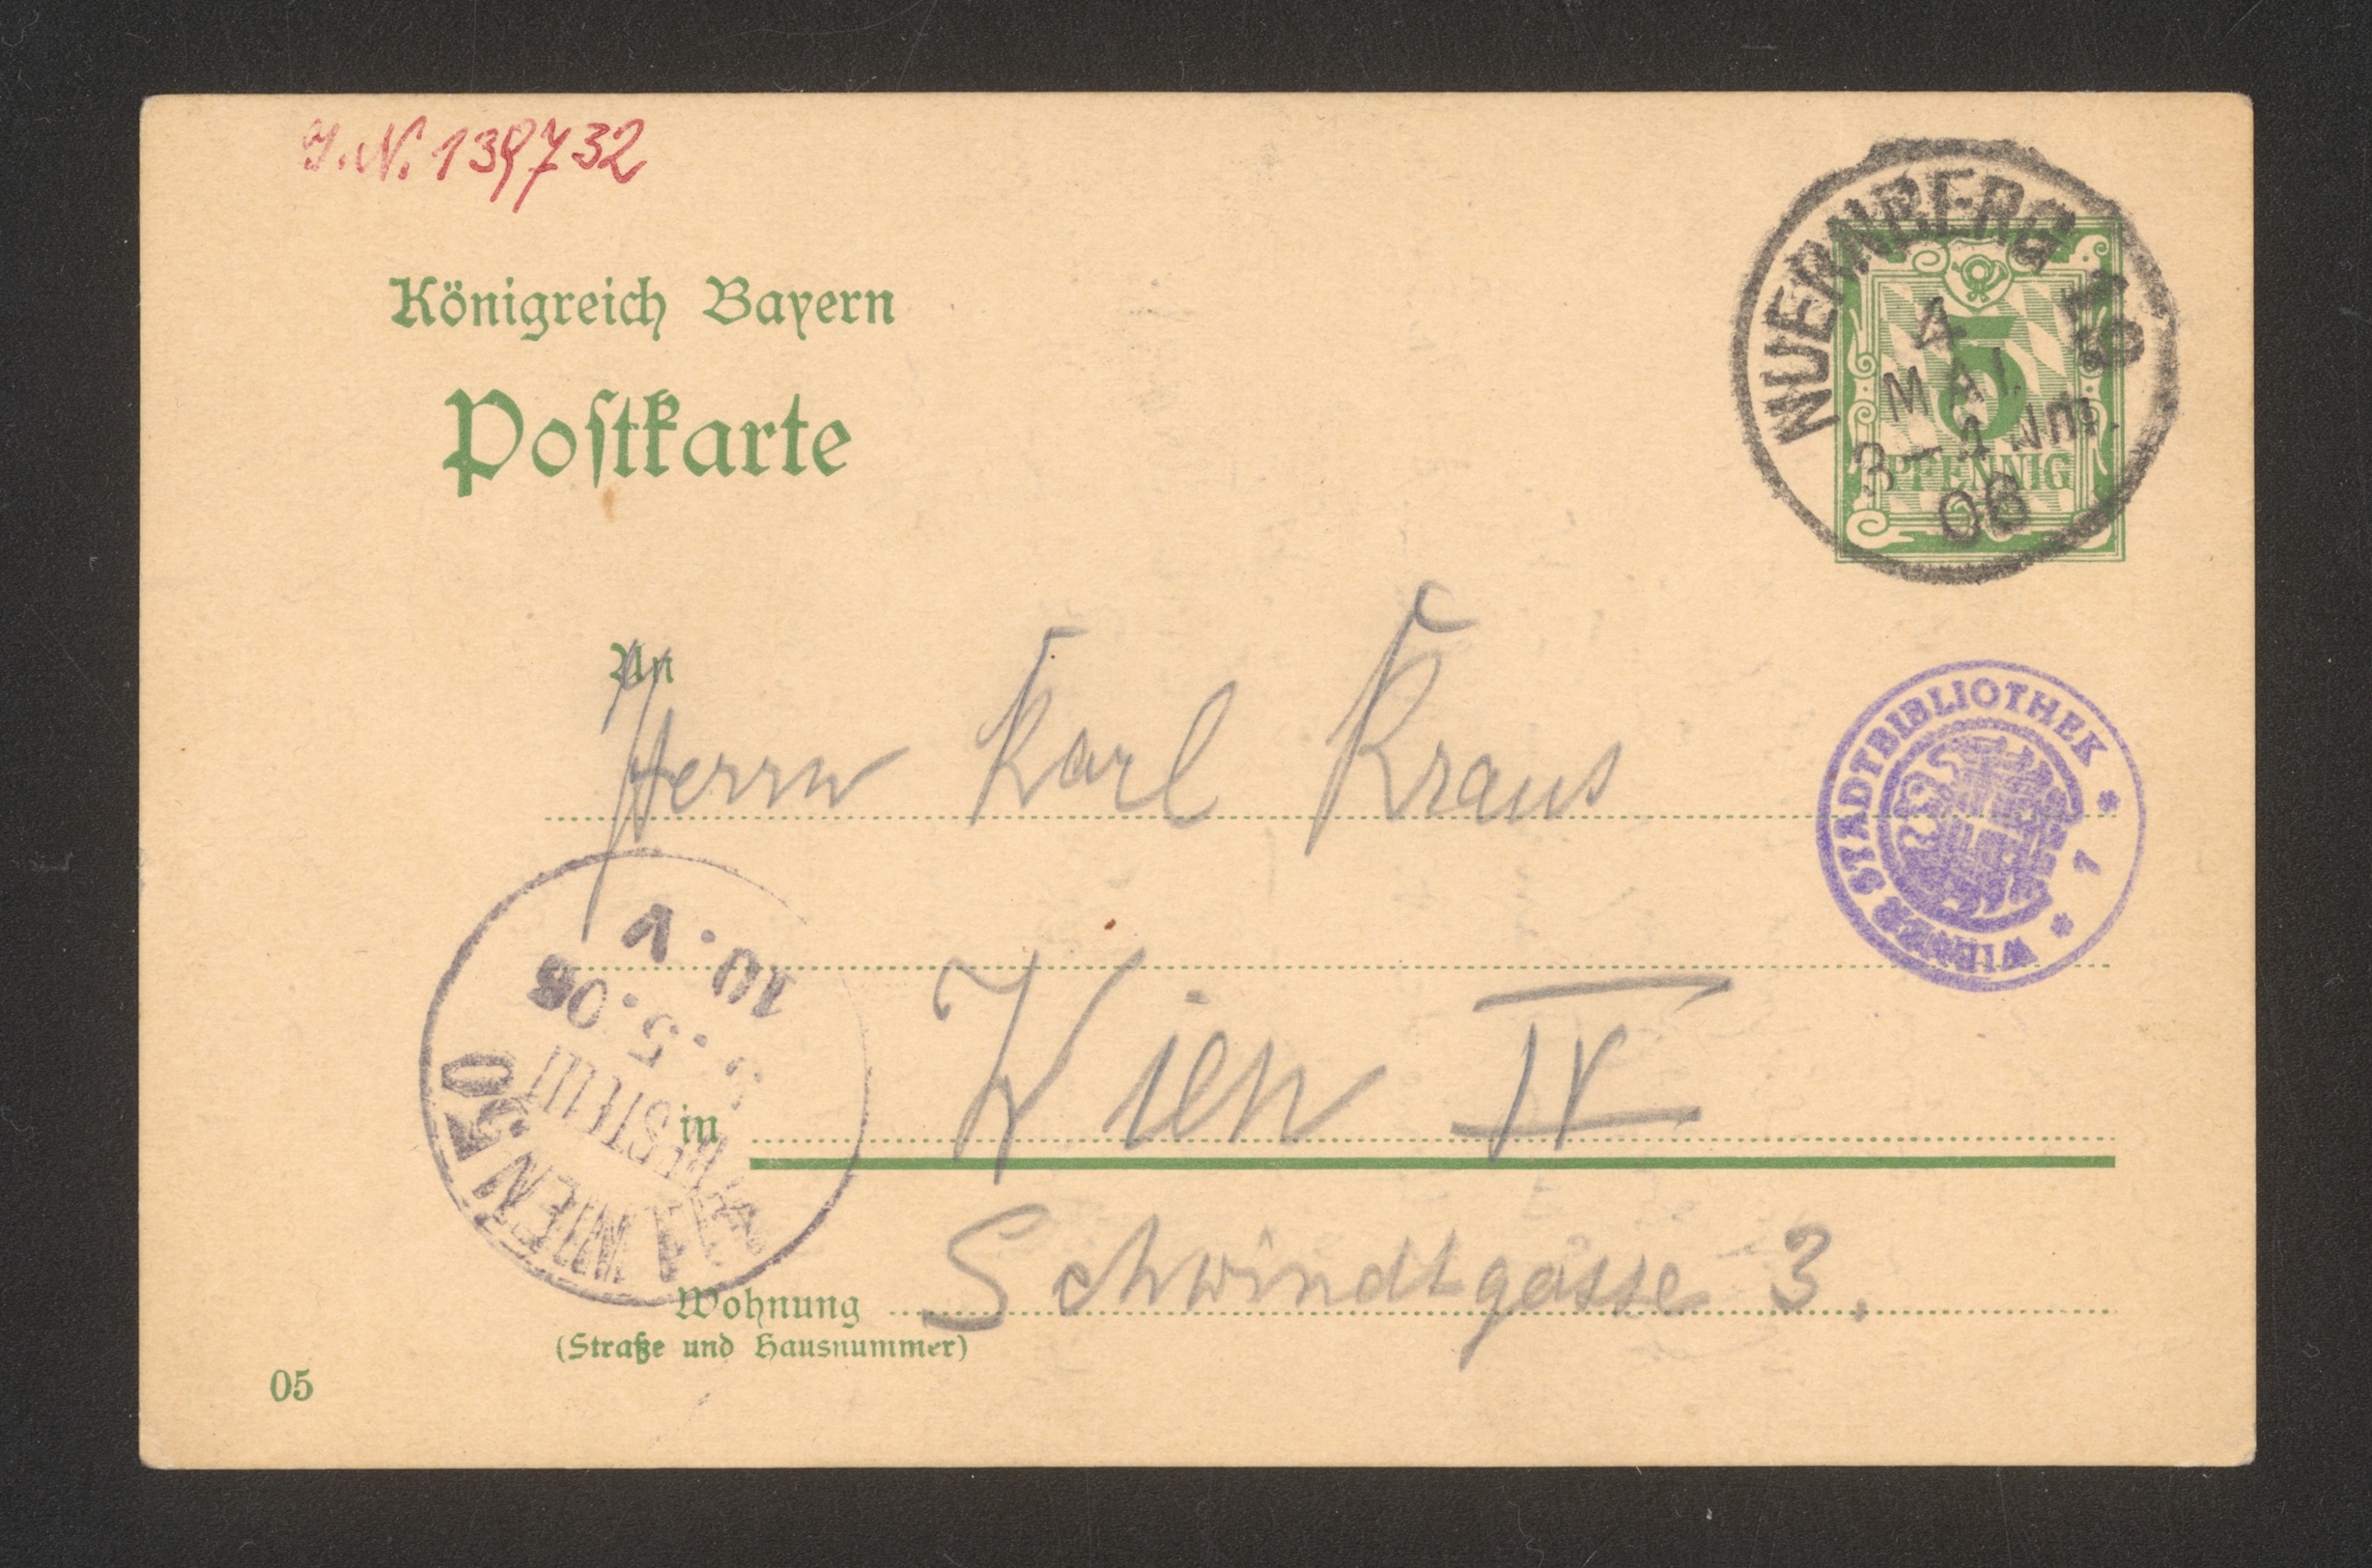 J.N. 139732
Königreich Bayern
Postkarte
NUERNBERG
4
MAI.
3-4 Nm.
06
5
PFENNIG
An
Herrn Karl Kraus
WIENER STADTBIBLIOTHEK * 7 *
in Wien IV
Wohnung Schwindtgasse 3.
(Straße und Hausnummer)
05
WIEN 50
BESTELLT
.5.06
10.V